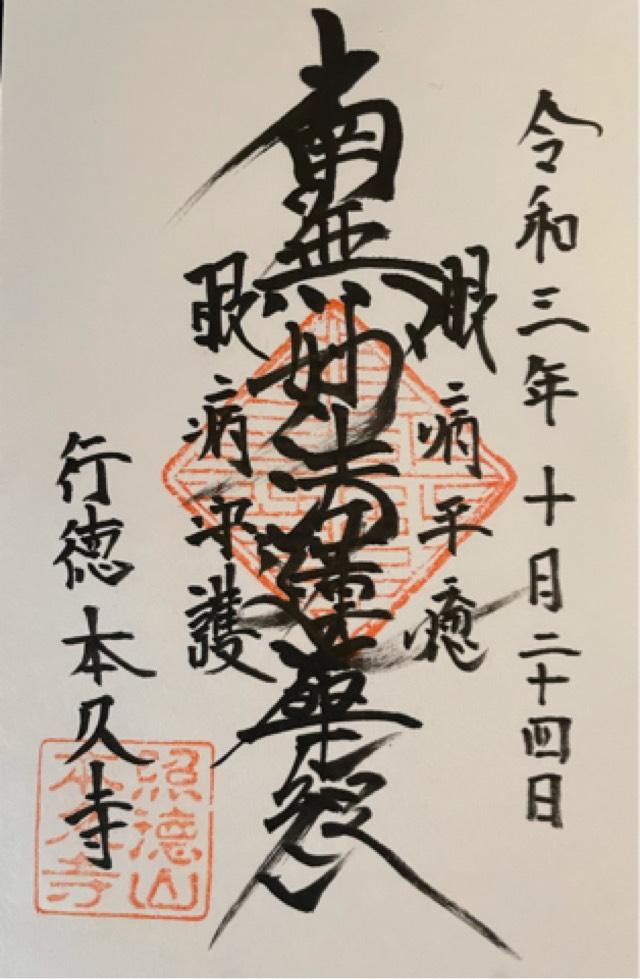 令和三年十月二十四日
眼病平癒
南無妙法蓮華経
眼病守護
行徳本久寺
照徳山
本久寺